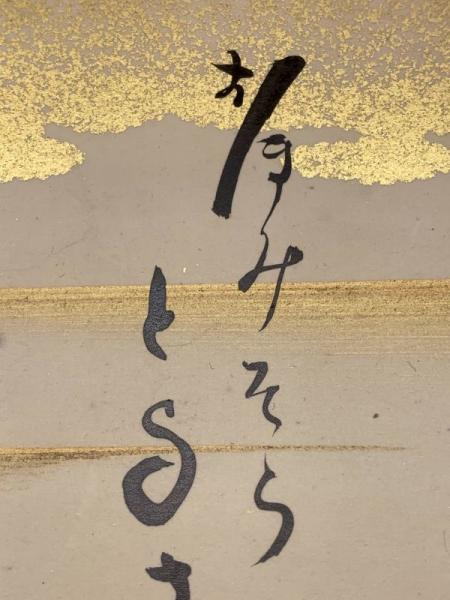 おほみそら
とる